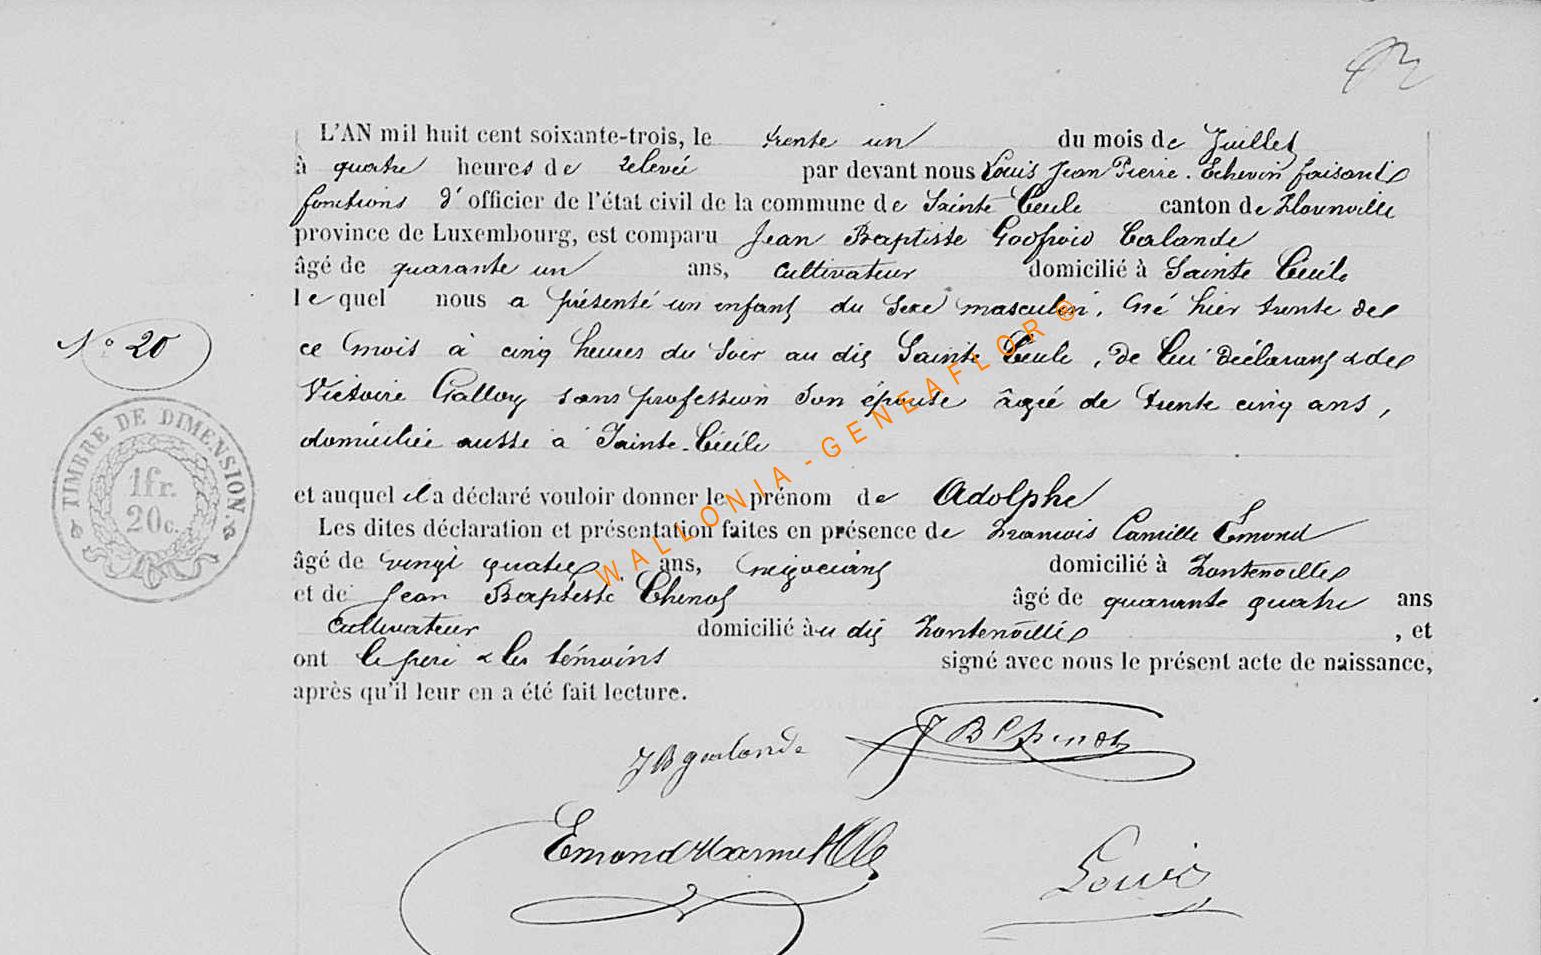 L'AN mil huit cent soixante-trois, le trente un du mois de Juillet
à quatre heures de relevée par devant nous Louis Jean Pierre. Echevin faisant
fonctions d'officier de l'état civil de la commune de Sainte Cecile canton de Florenville
province de Luxembourg, est comparu Jean Baptiste Godfroid Calande
âgé de quarante un ans, cultivateur domicilié à Sainte Cécile
lequel nous a présenté un enfant du sexe masculin, né hier trente de
ce mois à cinq heures du soir au dit Sainte Cecile, de lui déclarant & de
Victoire sans profession son épouse âgée de trente cinq ans,
domiciliée aussi à Sainte-Cécile
N° 20
TIMBRE DE DIMENSION.
1fr.
20c.
et auquel il a déclaré vouloir donner le prénom de Adolphe
Les dites déclaration et présentation faites en présence de Francois Camille Emond
âgé de vingt quatre ans, négociant domicilié à Fontenoille
et de Jean Baptiste Chenot âgé de quarante quatre ans
cultivateur domicilié au dit Fontenoille, et
ont le père & les témoins signé avec nous le présent acte de naissance,
après qu'il leur en a été fait lecture.
J B galande
J B Chenot
Emond
Louis
WALLONIA - GENEAFLOR ®